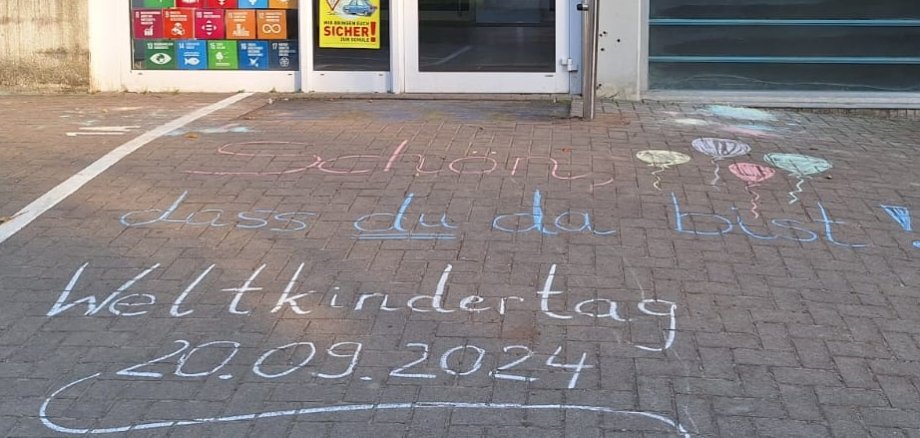 WIR BRINGEN EUCH
SICHER!
ZUR SCHULE!
Schön,
dass du da bist!
Weltkindertag
20.09.2024